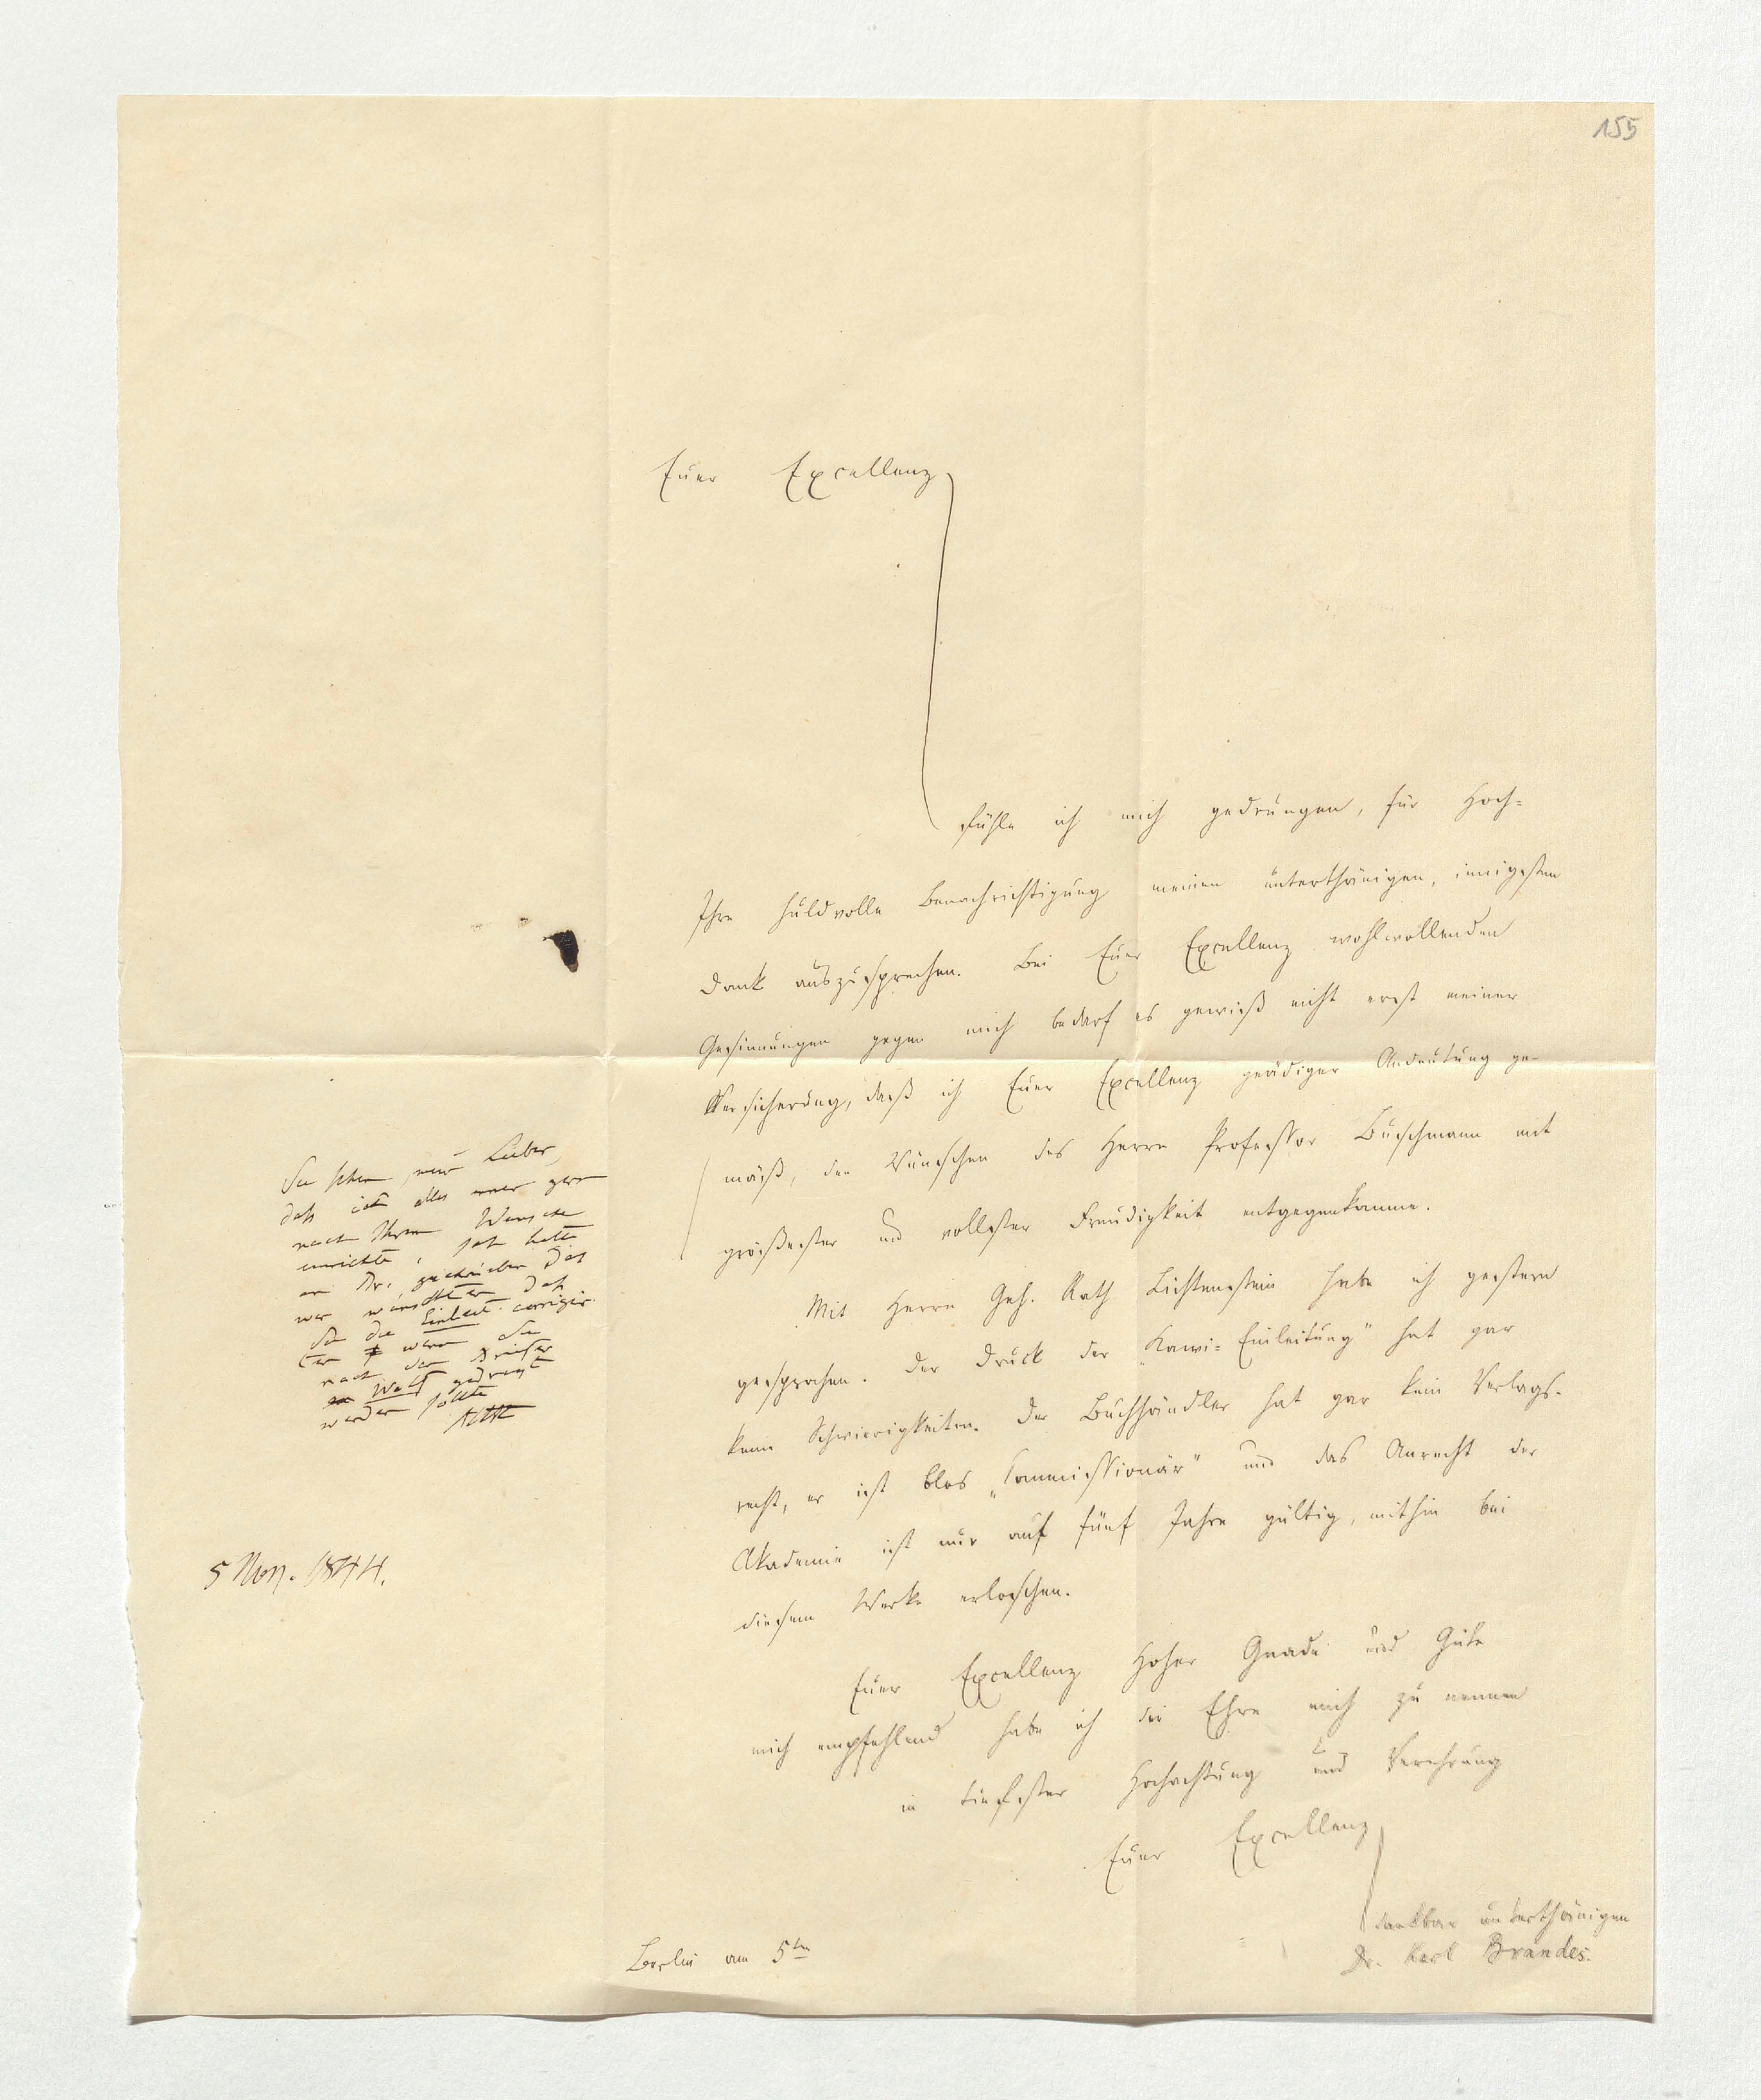 155
Euer Excellenz
fühle ich mich gedrungen, für Hoch-
Ihre huldvolle Benachrichtigung meinen unterthänigen, innigsten
Dank auszusprechen. Bei Euer Excellenz wohlwollenden
Gesinnungen gegen mich bedarf es gewiß nicht erst meiner
Versicherung, daß ich Euer Excellenz gnädiger Andeutung ge-
mäß, den Wünschen des Herrn Professor Buschmann mit
größester und vollster Freudigkeit entgegenkomme.
Mit Herrn Geh. Rath Lichtenstein habe ich gestern
gesprochen. Der Druck der „Kawi-Einleitung" hat gar
keine Schwierigkeiten. Der Buchhändler hat gar kein Verlags-
recht, er ist blos „Commissionär" und das Anrecht der
Akademie ist nur auf fünf Jahre gültig, mithin bei
diesem Werke erloschen.
Euer Excellenz Hoher Gnade und Güte
mich empfehlend habe ich die Ehre mich zu nennen
in tiefster Hochachtung und Verehrung
Euer Excellenz
dankbar unterthänigen
Dr. Karl Brandes.
Berlin am 5ten
Sie sehen, mein Lieber,
daß ich alles gern
nach Ihrem Wunsche
einrichte,
an Br. geschrieben daß
wir wünschten daß
Sie die Einleit. corrigir-
ten wenn Sie
nach den Briefen
an Wolf gedruckt
werden sollte
AHt
5 Nov. 1844.